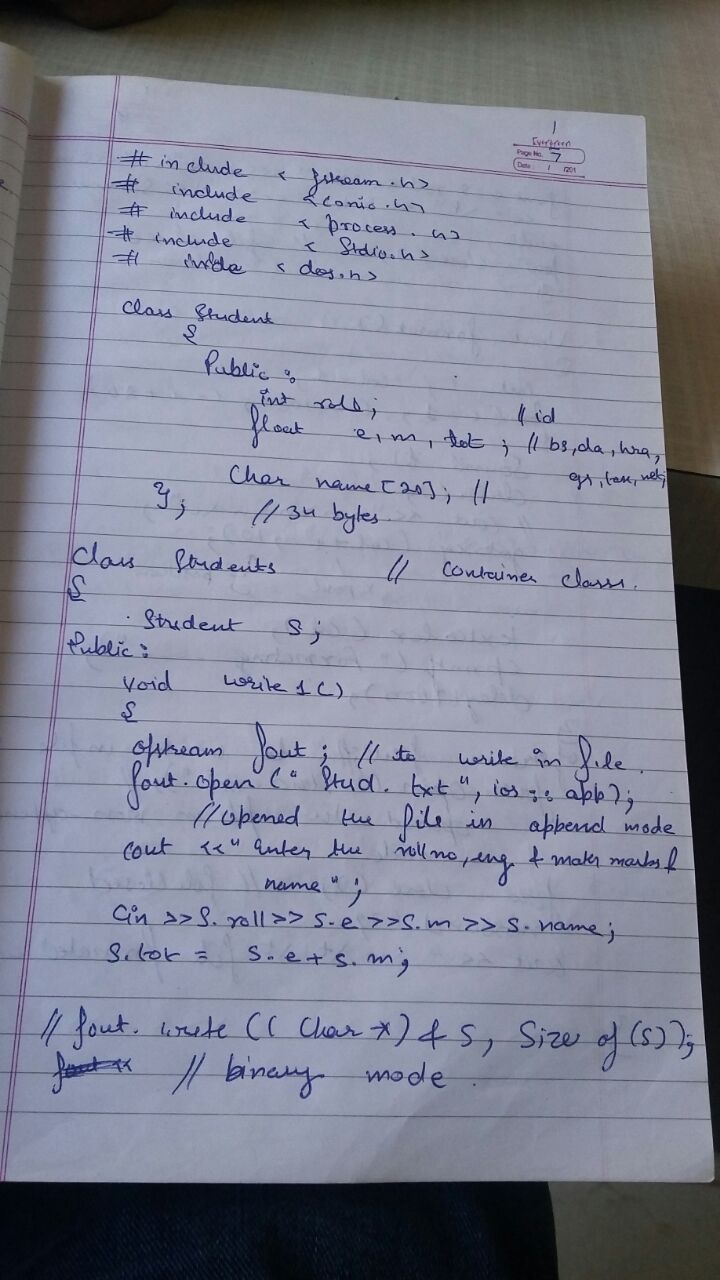 1
Evergreen
Page No. 7
Date: / /201
# include < fstream.h>
# include <conio.h>
# include < process.h>
# include < Stdio.h>
# inlde < dos.h>
class Student
{
Public :
int roll; // id
float e, m, tot ; // bs, da, hra,
gs, tax, net;
Char name [20]; //
}; // 34 bytes
Class Students // Container class.
{
Student S;
Public:
void write1()
{
ofstream fout ; // to write in file.
fout.open (" Stud. txt", ios :: app);
// opened the file in append mode
cout <<" Enter the rollno, eng & maths marks &
name" ;
Cin >> S. roll >> S.e >> S.m >> S. name;
S.tot = S.e + S.m;
// fout. write (( Char *) & S, Size of (S));
// binary mode.